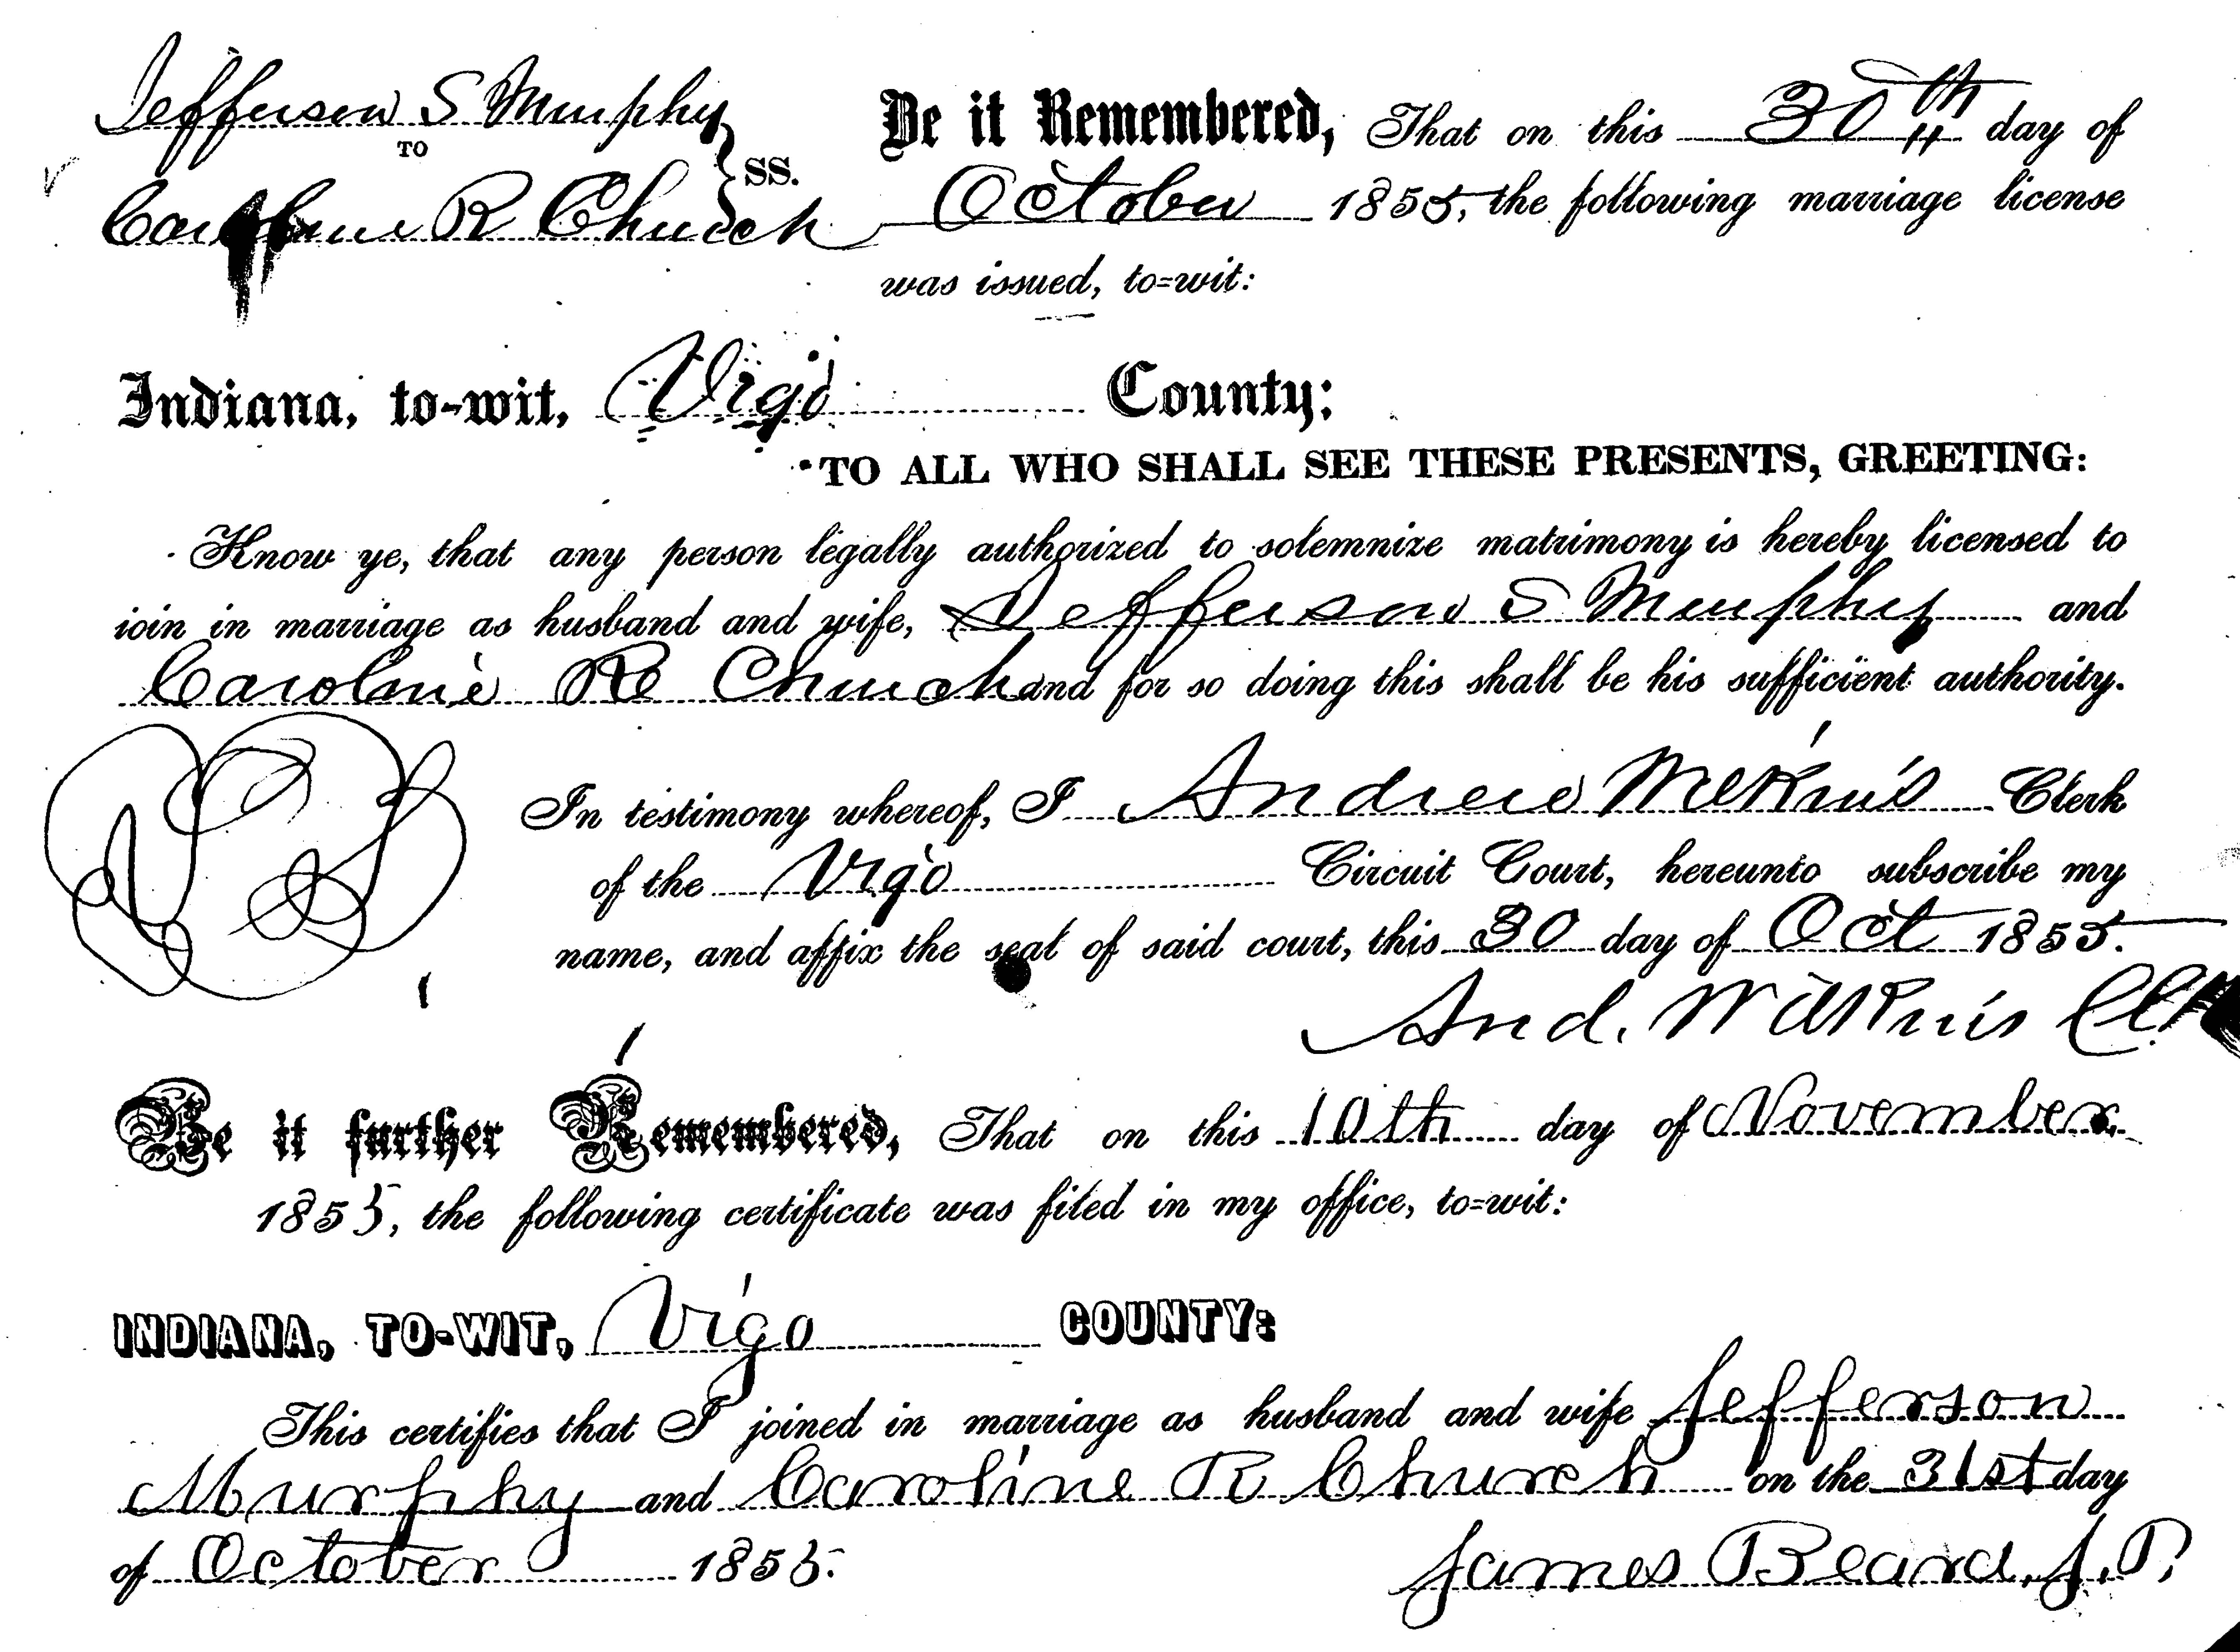 Jefferson S Murphy
TO
Caroline R Church
} SS.
Be it Remembered, That on this 30th day of
October 1855, the following marriage license
was issued, to=wit:
Indiana, to-wit, Vigo County:
TO ALL WHO SHALL SEE THESE PRESENTS, GREETING:
Know ye, that any person legally authorized to solemnize matrimony is hereby licensed to
join in marriage as husband and wife, Jefferson S Murphy and
Caroline R Church and for so doing this shall be his sufficient authority.
In testimony whereof, I Andrew Wilkins Clerk
of the Vigo Circuit Court, hereunto subscribe my
name, and affix the seal of said court, this 30 day of Oct 1855.
And. Wilkins Clk
Be it further Remembered, That on this 10th day of November
1855, the following certificate was filed in my office, to=wit:
INDIANA, TO-WIT, Vigo COUNTY:
This certifies that I joined in marriage as husband and wife Jefferson
Murphy and Caroline R Church on the 31st day
of October 1855.
James Beard, J.P.